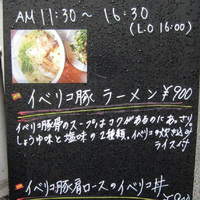 AM 11:30 ～ 16:30
(L.O 16:00)
イベリコ豚 ラーメン ¥900
イベリコ豚骨のスープはコクがあるのにあっさり
しょうゆ味と塩味の2種類。イベリコ炊き込み
ライス付
イベリコ豚肩ロースのイベリコ丼